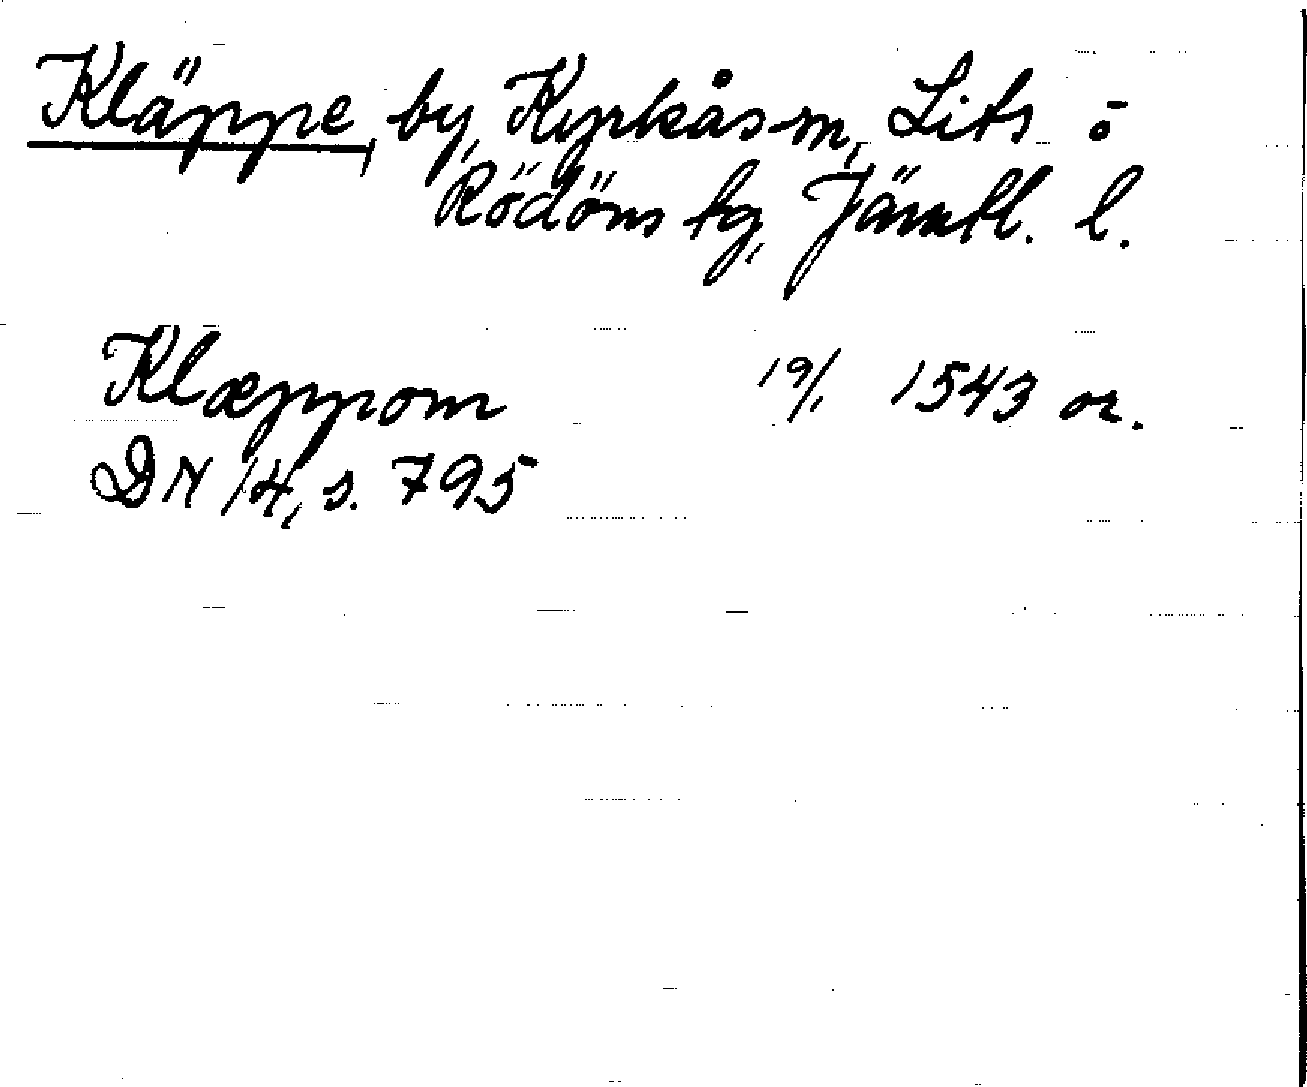 Kläppe, by, Kyrkås sn, Lits o
Rödöns tg, Jämtl. l.
Klæppom 19/1 1543 or.
DN 14, s. 795